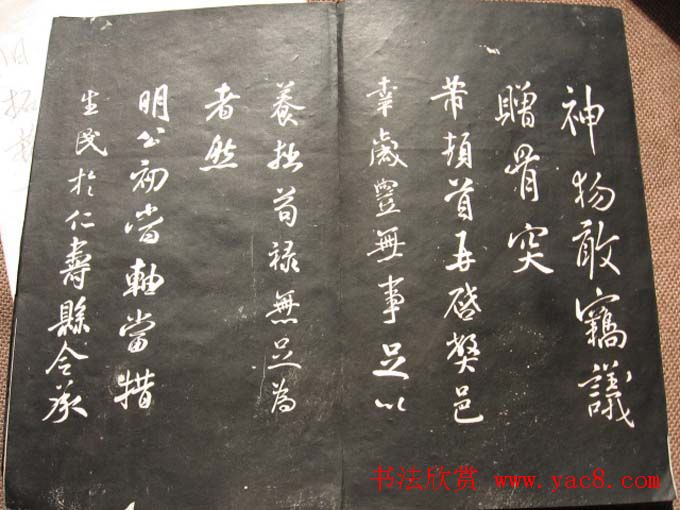 神物敢竊議
贈骨突
芾頓首再啓弊邑
幸歲豐無事足以
養拙苟祿無足為
者然
明公初當軸當措
生民於仁壽縣令承
旧拓
书法欣赏 www.yac8.com